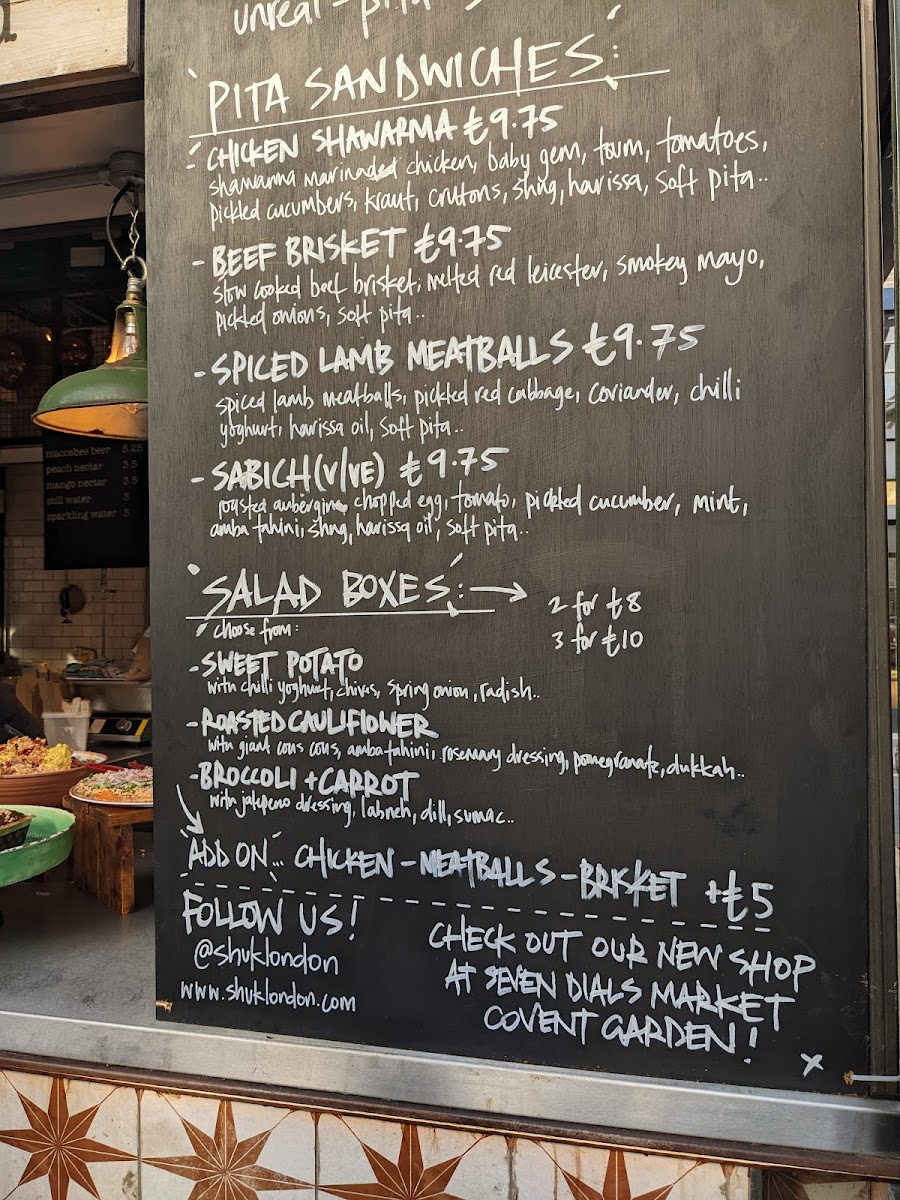 unreal - pita
PITA SANDWICHES:
- CHICKEN SHAWARMA £9.75
shawarma marinaded chicken, baby gem, toum, tomatoes,
pickled cucumbers, kraut, crutons, shug, harissa, soft pita..
- BEEF BRISKET £9.75
slow cooked beef brisket, melted red leicester, smokey mayo,
pickled onions, soft pita..
- SPICED LAMB MEATBALLS £9.75
spiced lamb meatballs, pickled red cabbage, coriander, chilli
yoghurt, harissa oil, soft pita..
- SABICH (V/VE) £9.75
roasted aubergine, chopped egg, tomato, pickled cucumber, mint,
amba tahini, shug, harissa oil, soft pita..
SALAD BOXES: → 2 for £8
3 for £10
choose from:
- SWEET POTATO
with chilli yoghurt, chives, spring onion, radish..
- ROASTED CAULIFLOWER
with giant cous cous, amba-tahini, rosemary dressing, pomegranate, dukkah..
- BROCCOLI + CARROT
with jalepeno dressing, labneh, dill, sumac..
ADD ON... CHICKEN - MEATBALLS - BRISKET +£5
FOLLOW US!
@shuklondon
www.shuklondon.com
CHECK OUT OUR NEW SHOP
AT SEVEN DIALS MARKET
COVENT GARDEN!
x
maccabee beer 5.25
peach nectar 3.5
mango nectar 3.5
still water 3
sparkling water 3